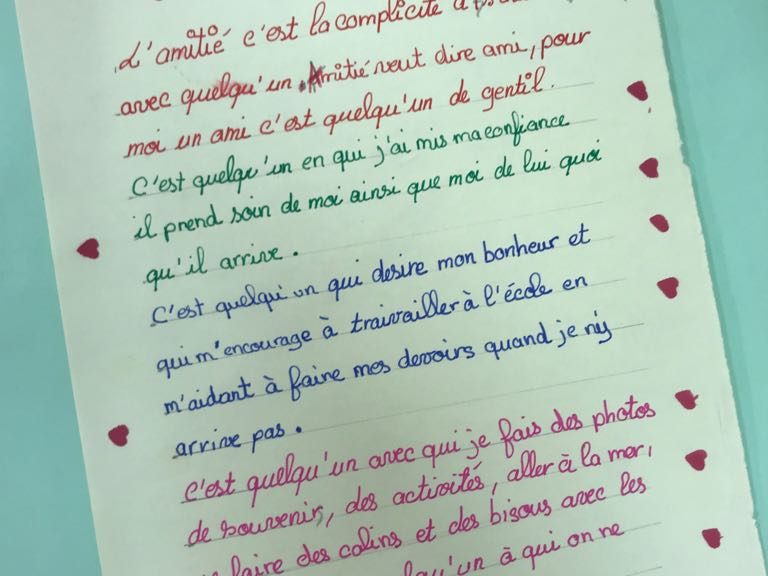 L'amitié c'est la complicité
avec quelqu'un. Amitié veut dire ami, pour
moi un ami c'est quelqu'un de gentil.
C'est quelqu'un en qui j'ai mis ma confiance
il prend soin de moi ainsi que moi de lui quoi
qu'il arrive.
C'est quelqu'un qui desire mon bonheur et
qui m'encourage à traivailler à l'école en
m'aidant à faire mes devoirs quand je n'y
arrive pas.
C'est quelqu'un avec qui je fais des photos
de souvenir, des activités, aller à la mer,
faire des calins et des bisous avec les
qu'un à qui on ne